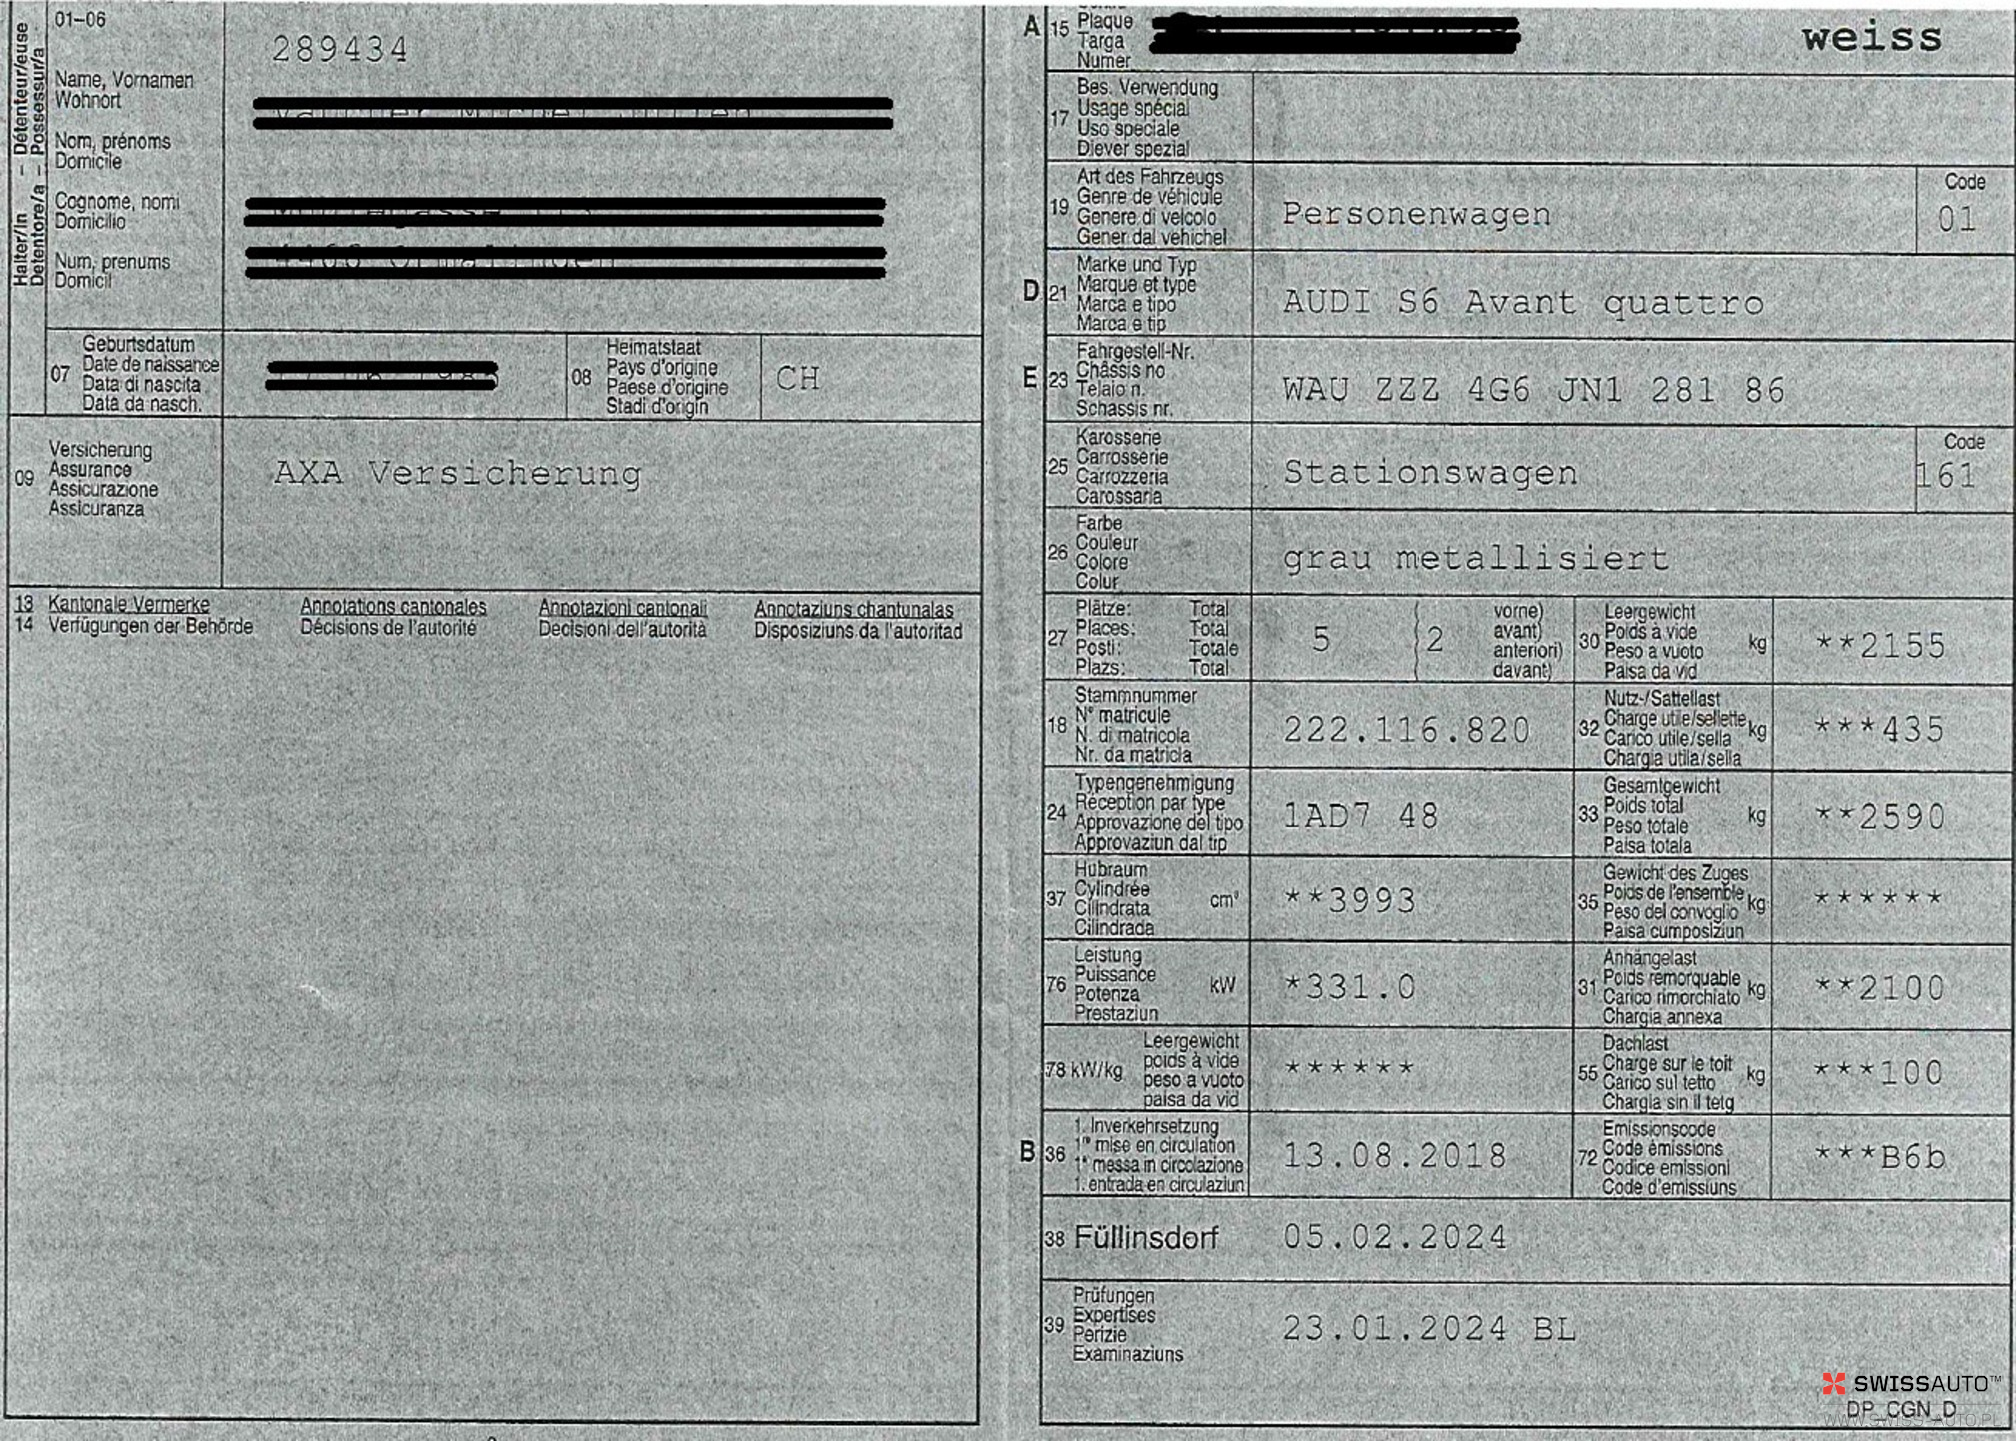 Halter/in – Détenteur/euse
Detentore/a – Possessur/a
01–06
289434
Name, Vornamen
Wohnort
Nom, prénoms
Domicile
Cognome, nomi
Domicilio
Num, prenums
Domicil
07
Geburtsdatum
Date de naissance
Data di nascita
Data da nasch.
08
Heimatstaat
Pays d'origine
Paese d'origine
Stadi d'origin
CH
09
Versicherung
Assurance
Assicurazione
Assicuranza
AXA Versicherung
13 Kantonale Vermerke Annotations cantonales Annotazioni cantonali Annotaziuns chantunalas
14 Verfügungen der Behörde Décisions de l'autorité Decisioni dell'autorità Disposiziuns da l'autoritad
A 15
Plaque
Targa
Numer
weiss
17
Bes. Verwendung
Usage spécial
Uso speciale
Diever spezial
19
Art des Fahrzeugs
Genre de véhicule
Genere di veicolo
Gener dal vehichel
Personenwagen
Code
01
D 21
Marke und Typ
Marque et type
Marca e tipo
Marca e tip
AUDI S6 Avant quattro
E 23
Fahrgestell-Nr.
Châssis no
Telaio n.
Schassis nr.
WAU ZZZ 4G6 JN1 281 86
25
Karosserie
Carrosserie
Carrozzeria
Carossaria
Stationswagen
Code
161
26
Farbe
Couleur
Colore
Colur
grau metallisiert
27
Plätze: Total
Places: Total
Posti: Totale
Plazs: Total
5 2
vorne)
avant)
anteriori)
davant)
30
Leergewicht
Poids à vide
Peso a vuoto
Paisa da vid
kg
**2155
18
Stammnummer
N° matricule
N. di matricola
Nr. da matricla
222.116.820
32
Nutz-/Sattellast
Charge utile/sellette
Carico utile/sella
Chargia utila/sella
kg
***435
24
Typengenehmigung
Réception par type
Approvazione del tipo
Approvaziun dal tip
1AD7 48
33
Gesamtgewicht
Poids total
Peso totale
Paisa totala
kg
**2590
37
Hubraum
Cylindrée
Cilindrata
Cilindrada
cm³
**3993
35
Gewicht des Zuges
Poids de l'ensemble
Peso del convoglio
Paisa cumposiziun
kg
******
76
Leistung
Puissance
Potenza
Prestaziun
kW
*331.0
31
Anhängelast
Poids remorquable
Carico rimorchiato
Chargia annexa
kg
**2100
78 kW/kg
Leergewicht
poids à vide
peso a vuoto
paisa da vid
******
55
Dachlast
Charge sur le toit
Carico sul tetto
Chargia sin il tetg
kg
***100
B 36
1. Inverkehrsetzung
1re mise en circulation
1a messa in circolazione
1. entrada en circulaziun
13.08.2018
72
Emissionscode
Code émissions
Codice emissioni
Code d'emissiuns
***B6b
38 Füllinsdorf 05.02.2024
39
Prüfungen
Expertises
Perizie
Examinaziuns
23.01.2024 BL
SWISSAUTO™
DP_CGN_D
WWW.SWISS-AUTO.PL